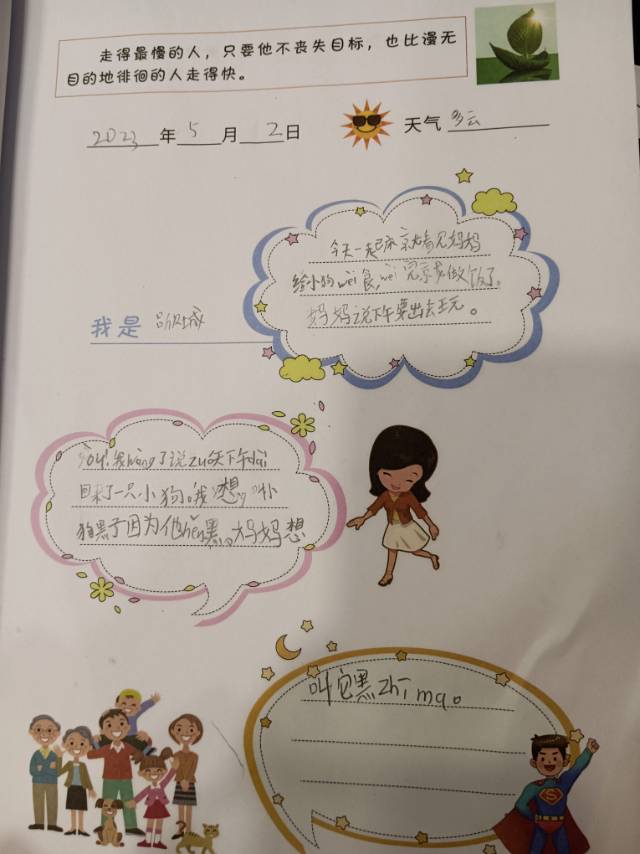 走得最慢的人，只要他不丧失目标，也比漫无
目的地徘徊的人走得快。
2023年5月2日
天气 多云
今天一起床就看见妈妈
给小狗wèi食,wèi完就去做饭了。
妈妈说下午要出去玩。
我是
oy!我wàng了说zuó天下午dài
回来了一只小狗。我想叫
狗黑子因为他hēn黑。妈妈想
叫它黑zhī ma。